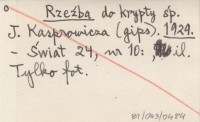 Rzeźba do krypty śp.
J. Kasprowicza (gips). 1929.
- Świat 24, nr 10: il.
Tylko fot.